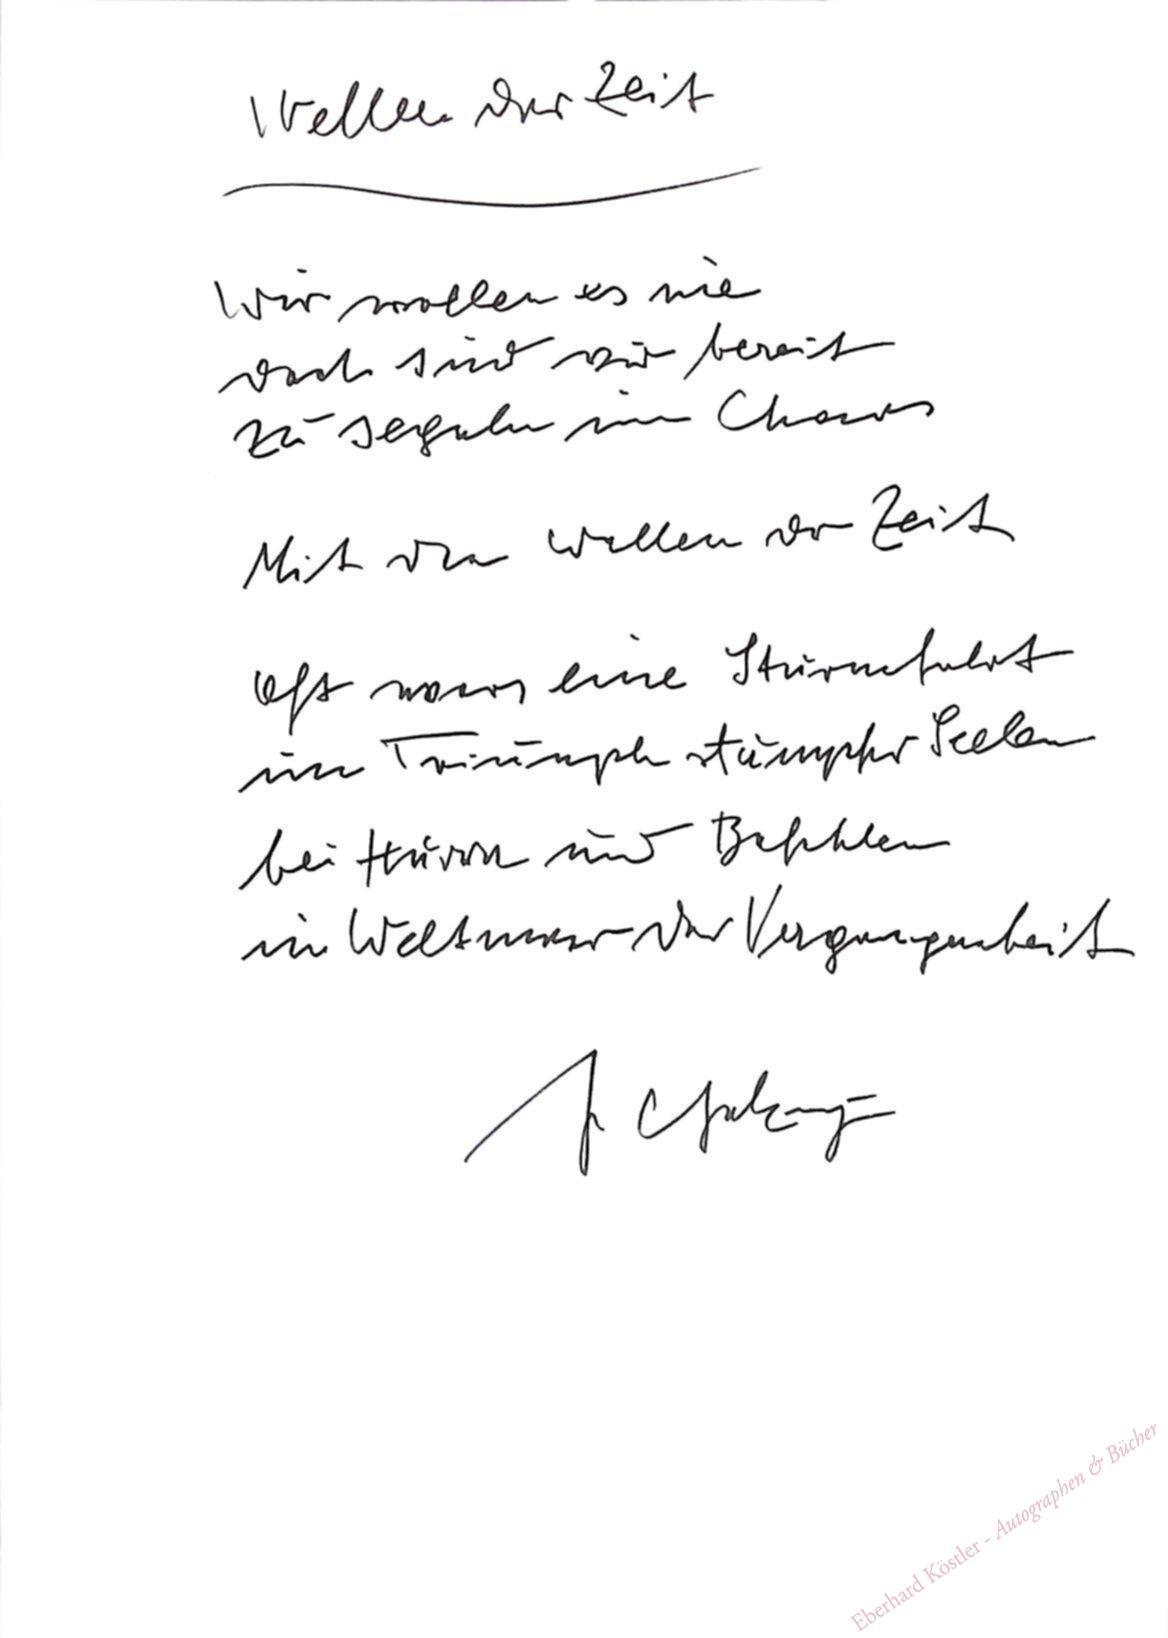 Wellen der Zeit
Wir wollen es nie
doch sind wir bereit
zu segeln im Chaos
Mit den Wellen der Zeit
Oft wars eine Sturmfahrt
im Triumph stumpfer Seelen
bei Hurra und Befehlen
im Weltmeer der Vergangenheit
Eberhard Köstler - Autographen & Bücher